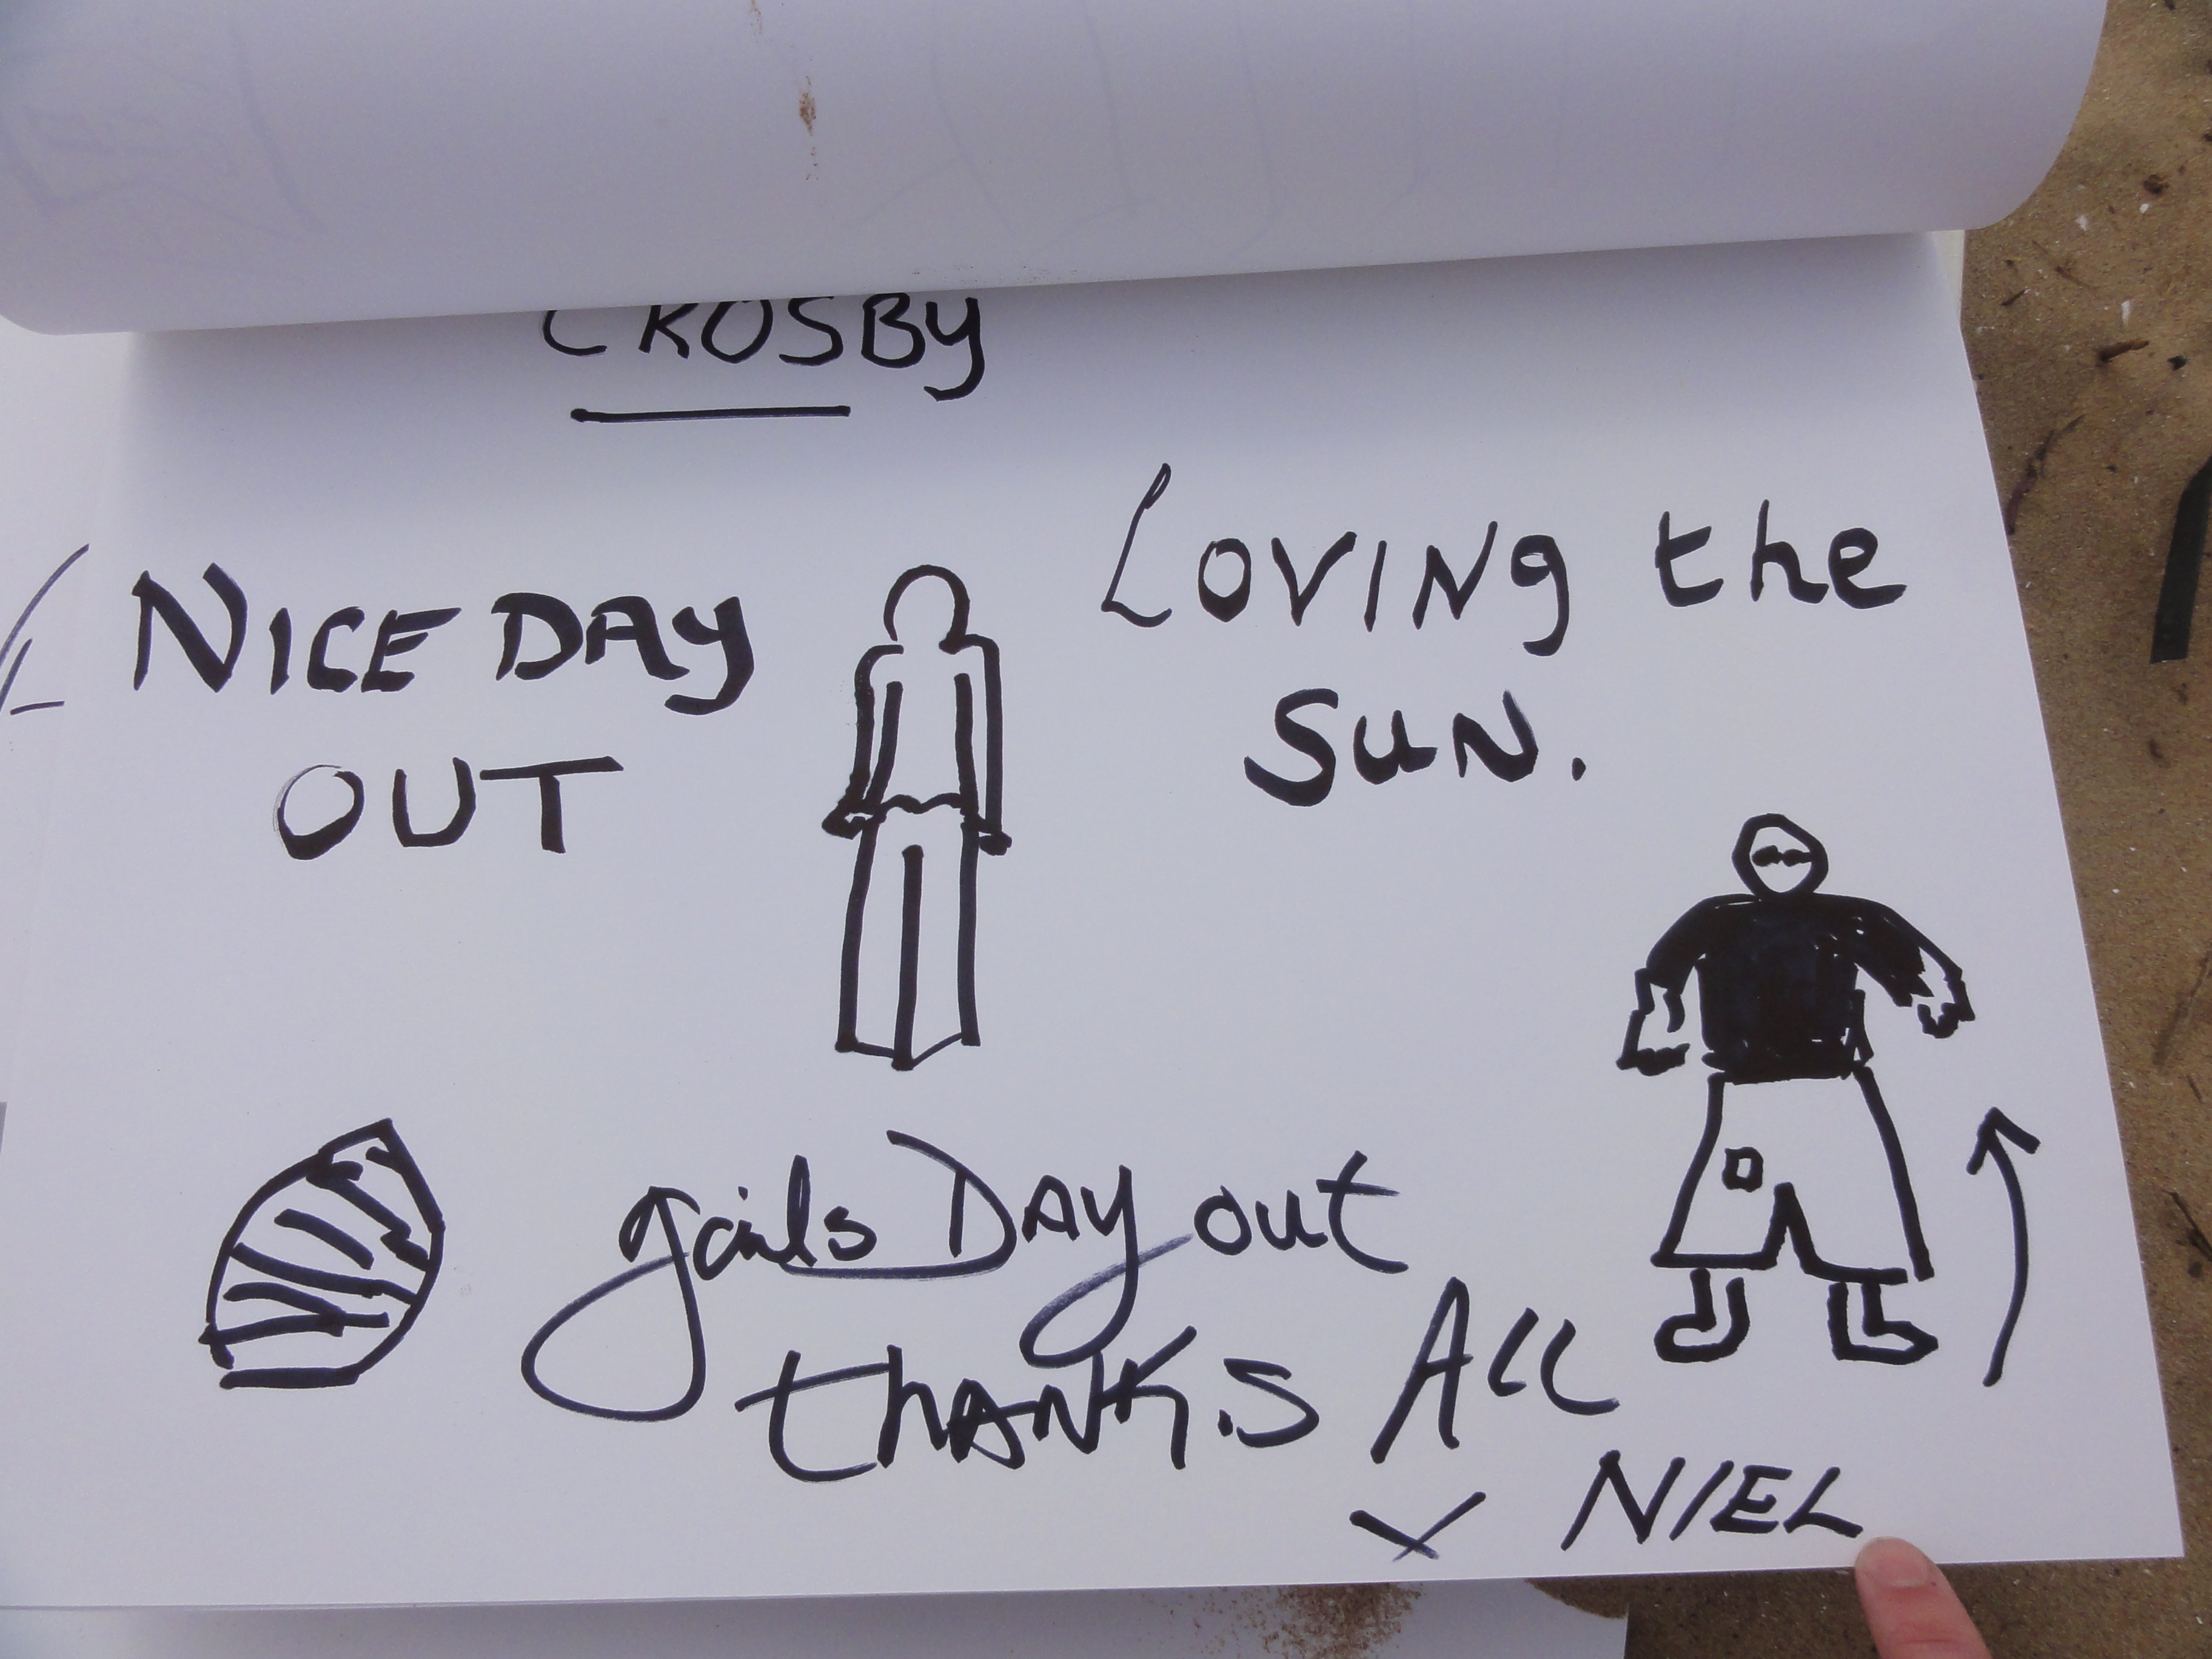 CROSBY
NICE DAY
OUT
LOVING the
SUN.
gails DAY out
thANK.S ALL
X NIEL